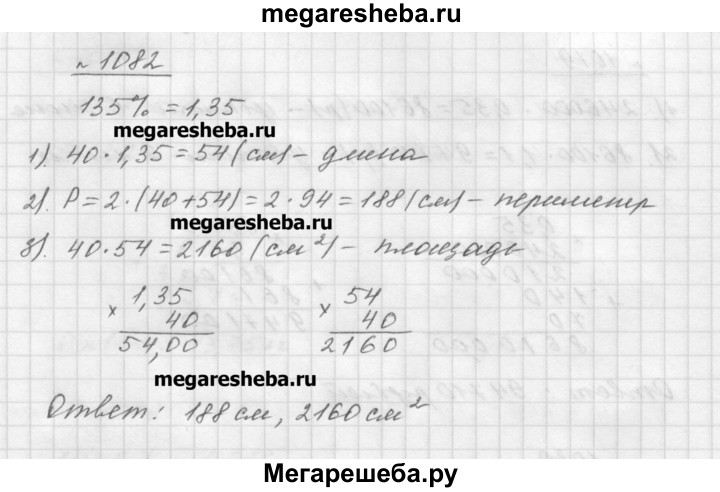 megaresheba.ru
№ 1082
135% = 1,35
megaresheba.ru
1). 40 · 1,35 = 54 (см) - длина
2). P = 2 · (40 + 54) = 2 · 94 = 188 (см) - периметр
megaresheba.ru
3). 40 · 54 = 2160 (см²) - площадь
× 1,35 × 54
40 40
54,00 2160
megaresheba.ru
Ответ: 188 см, 2160 см²
Мегарешеба.ру